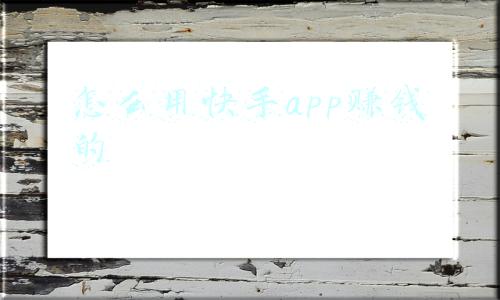 怎么用快手app赚钱
的